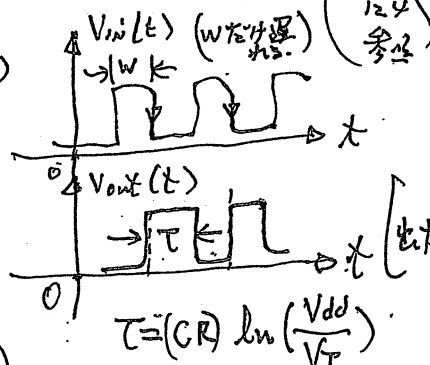 VIN(t) (Wだけ遅れる.)
参照
W
t
0
Vout(t)
τ
t
0
τ=(CR) ln(Vdd/VT)